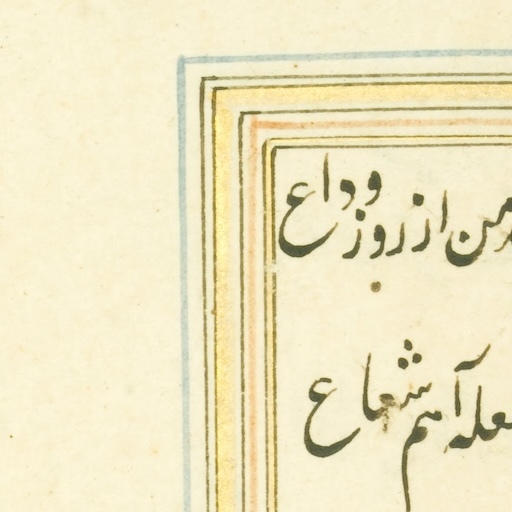 من از روز وداع
شعله آهم شعاع